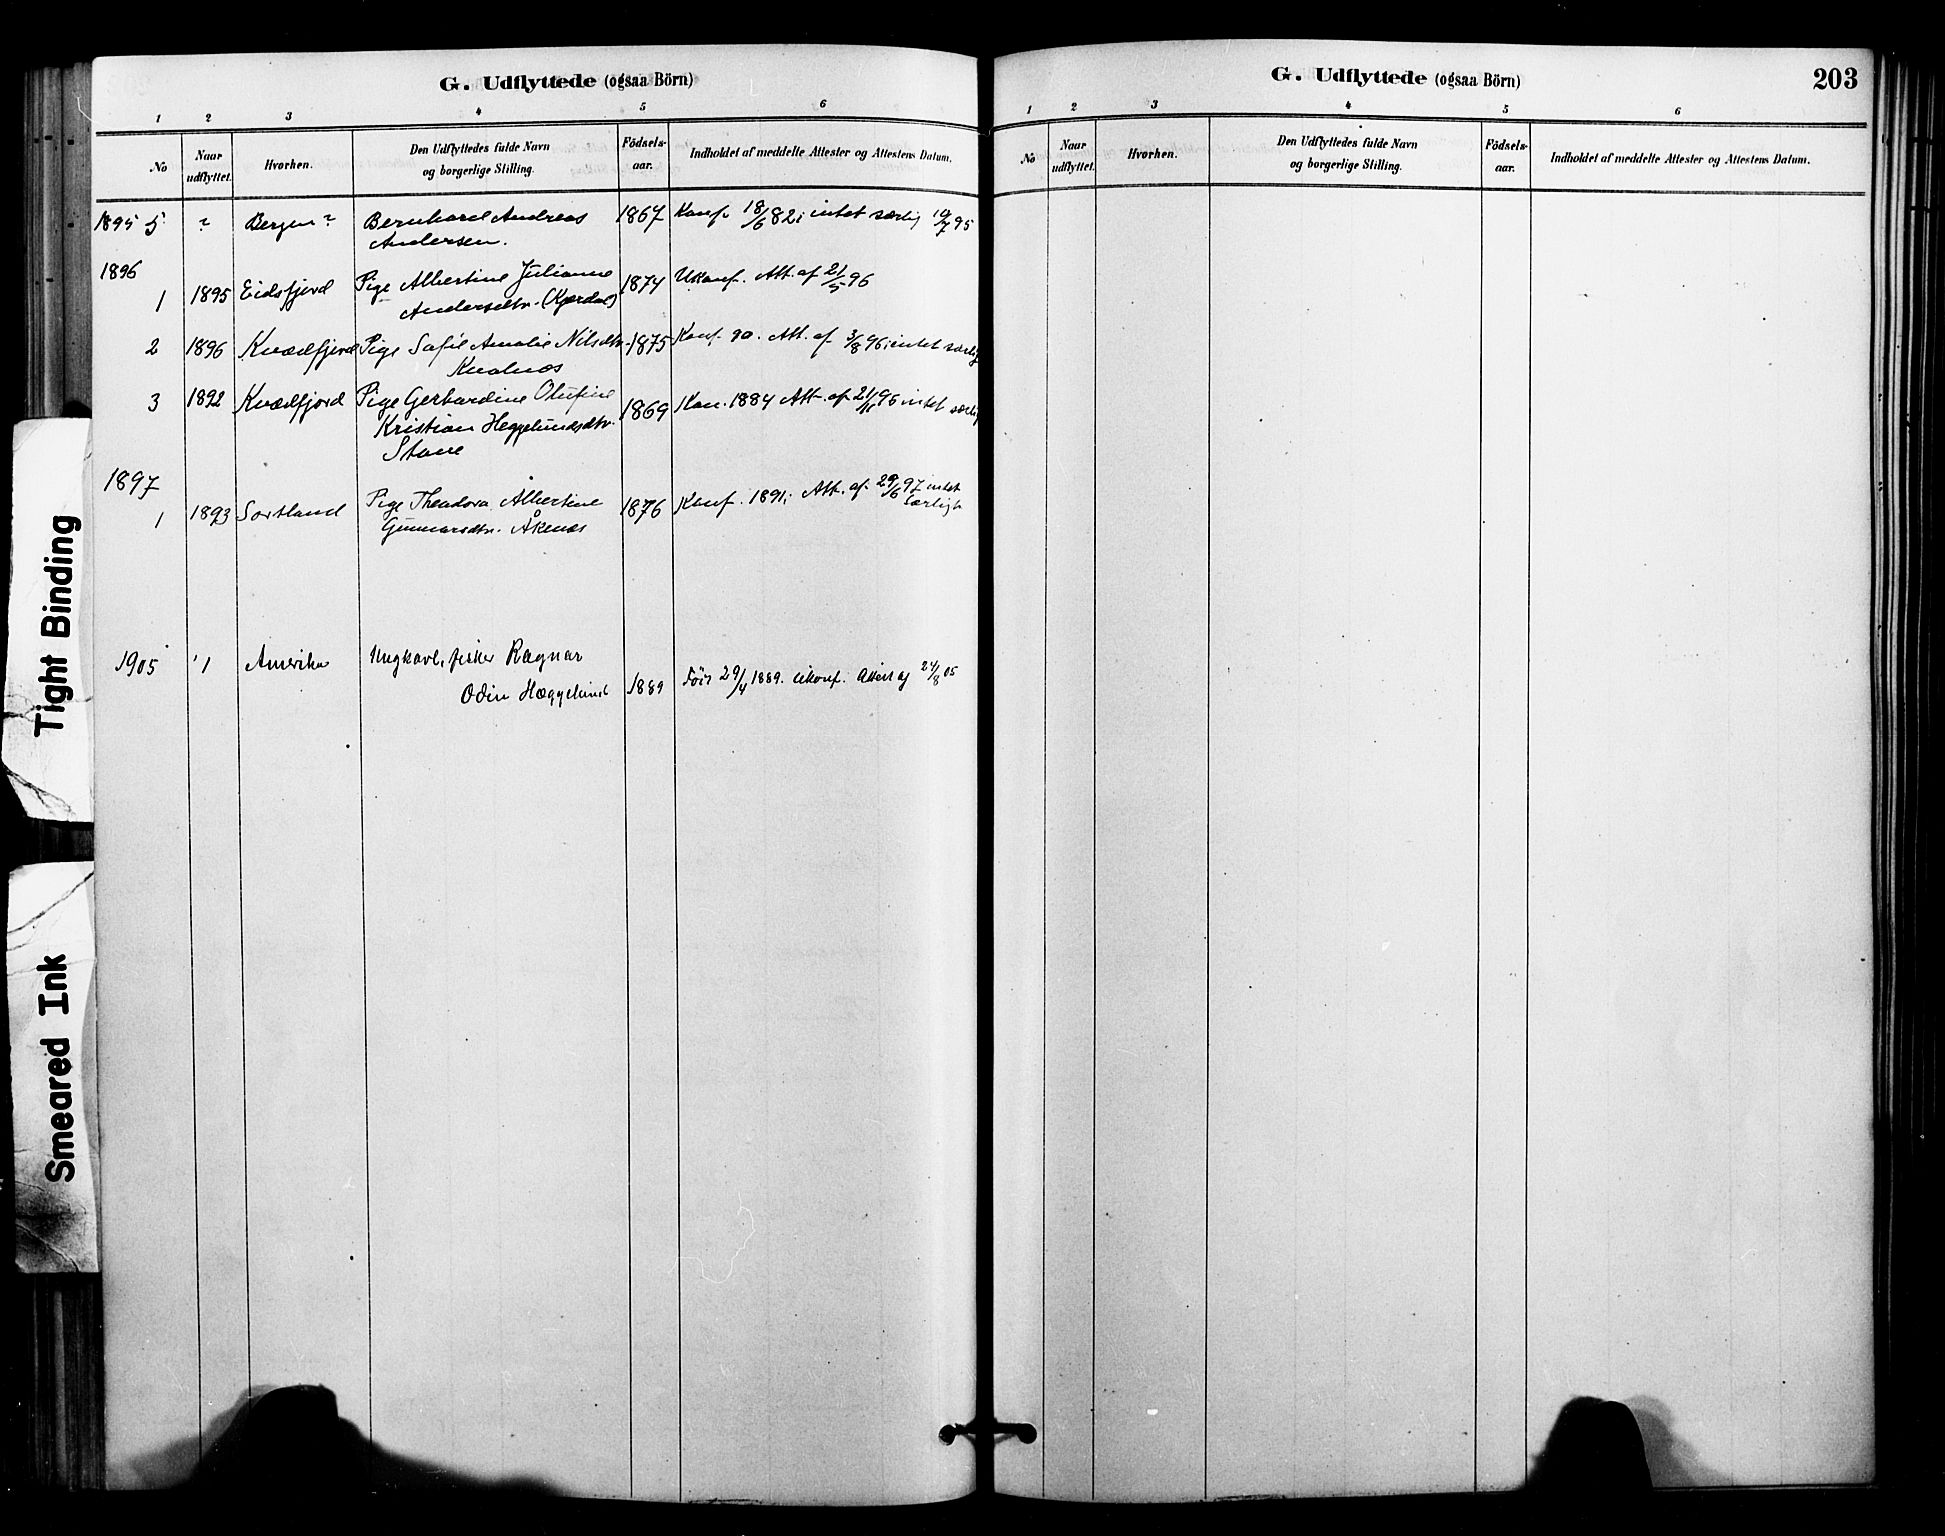 G. Udflyttede (ogsaa Börn)
1 2 3 4 5 6
No Naar udflyttet. Hvorhen. Den Udflyttedes fulde Navn og borgerlige Stilling. Födsels-aar. Indholdet af meddelte Attester og Attestens Datum.
1895 5 ? Bergen? Bernhard Andreas 1867 Konf. 18/6 82; intet særlig 19/7 95
Andersen.
1896
1 1895 Eidsfjord Pige Albertine Julianne 1874 Ukonf. Att. af 21/5 96
Andersdtr. (Kjørdal)
2 1896 Kvædfjord Pige Sofie Amalie Nilsdtr. 1875 Konf. 90. Att. af 3/8 96; intet særlig
3 1892 Kvædfjord Pige Gerhardine Olufine 1869 Kon. 1884 Att. af 21/11 96 intet særlig
Kristian Heggelundsdtr.
1897
1 1893 Sortland Pige Theodora Albertine 1876 Konf. 1891; Att. af 29/6 97 intet særligt
Gunnarsdtr. Åkenæs
1905 1 Amerika Ungkarl, fisker Ragnar
Odin Hæggelund 1889 Född 29/4 1889. ukonf. Attest af 24/8 05
G. Udflyttede (ogsaa Börn)
203
1 2 3 4 5 6
No Naar udflyttet. Hvorhen. Den Udflyttedes fulde Navn og borgerlige Stilling. Födsels-aar. Indholdet af meddelte Attester og Attestens Datum.
Tight Binding
Smeared Ink